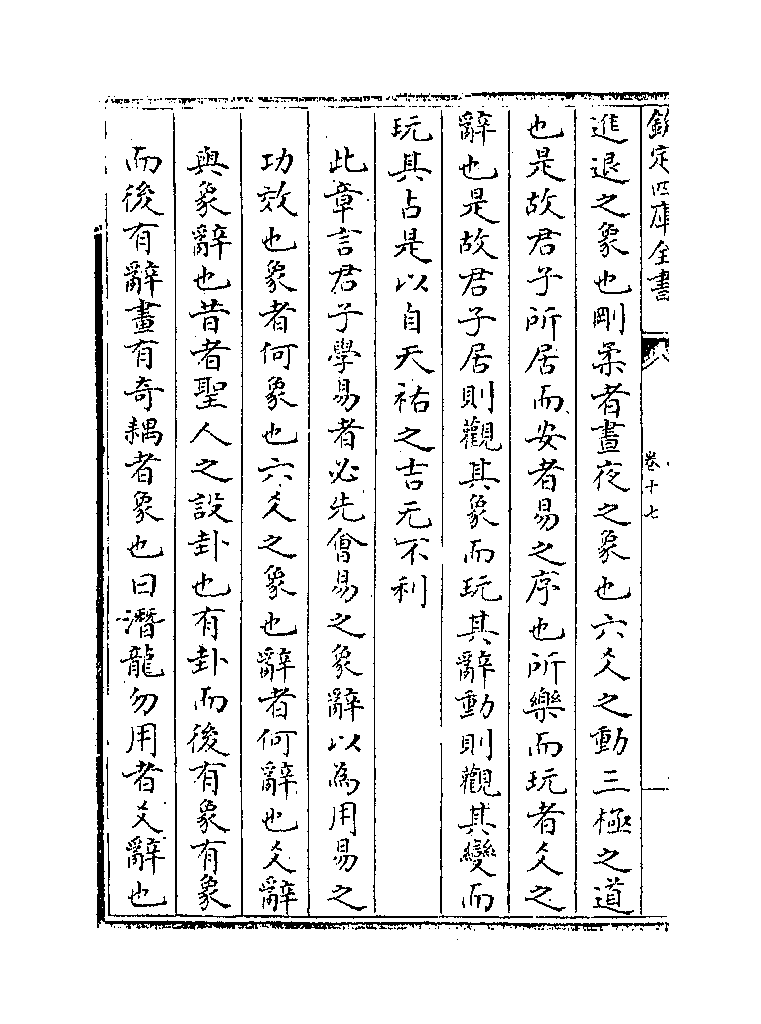 欽定四庫全書
卷十七
進退之象也剛柔者晝夜之象也六爻之動三極之道
也是故君子所居而安者易之序也所樂而玩者爻之
辭也是故君子居則觀其象而玩其辭動則觀其變而
玩其占是以自天祐之吉无不利
此章言君子學易者必先會易之象辭以為用易之
功效也象者何象也六爻之象也辭者何辭也爻辭
與象辭也昔者聖人之設卦也有卦而後有象有象
而後有辭畫有奇耦者象也曰潛龍勿用者爻辭也